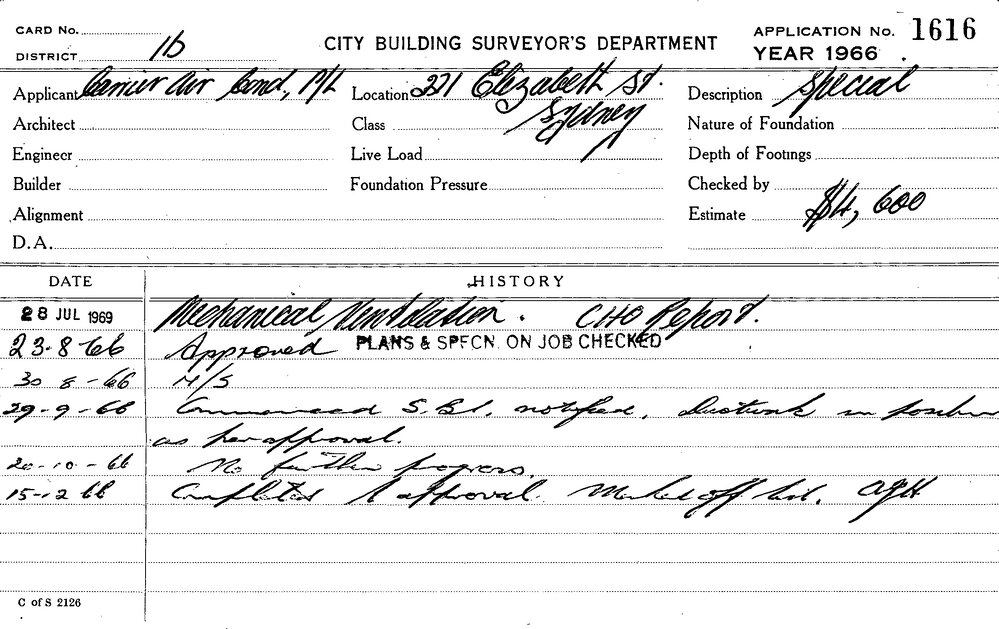 CARD No.
DISTRICT 1b
CITY BUILDING SURVEYOR'S DEPARTMENT
APPLICATION No. 1616
YEAR 1966
Applicant Carrier Air Cond., P/L Location 221 Elizabeth St. Description Special
Architect Class Sydney Nature of Foundation
Engineer Live Load Depth of Footings
Builder Foundation Pressure Checked by
Alignment Estimate $4,600
D.A.
DATE HISTORY
28 JUL 1969 Mechanical Ventilation. CHO Report.
23-8-66 Approved PLANS & SPFCN. ON JOB CHECKED
30 8-66 N/S
29-9-66 Commenced S.B.I. notified. Ductwork in position
as per approval.
20-10-66 No further progress.
15-12 66 Completed approval. Marked off list.
C of S 2126